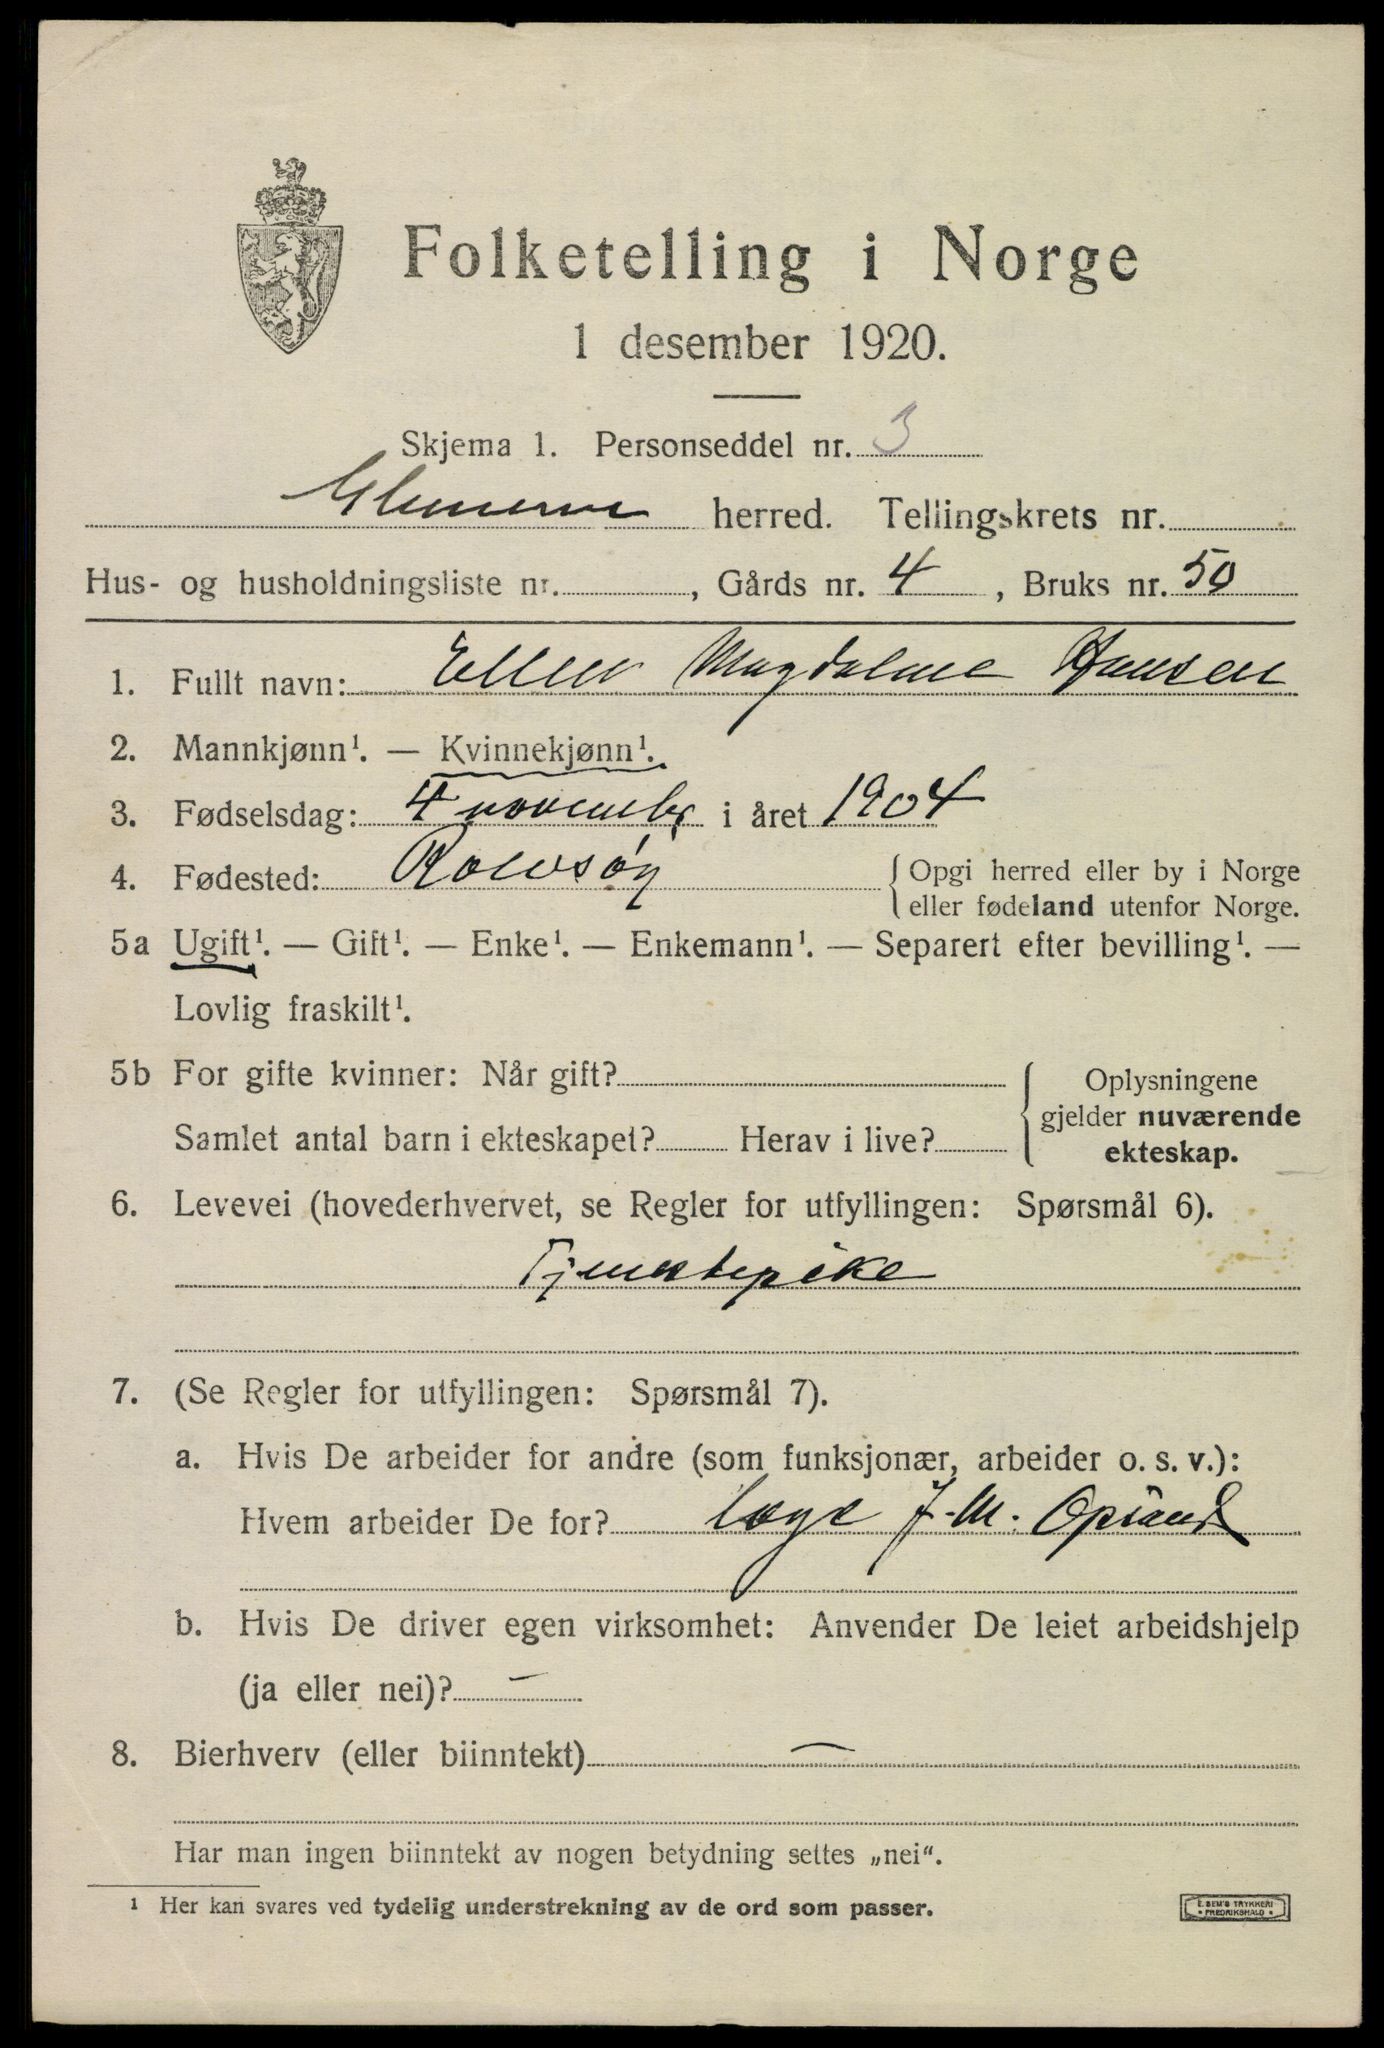 Folketelling i Norge
1 desember 1920.
Skjema 1. Personseddel nr. 3
Glemmen herred. Tellingskrets nr.
Hus- og husholdningsliste nr. , Gårds nr. 4 , Bruks nr. 50
1. Fullt navn: Ellen Magdalene Hansen
2. Mannkjønn¹. — Kvinnekjønn¹.
3. Fødselsdag: 4 november i året 1904
4. Fødested: Rolvsøy { Opgi herred eller by i Norge
eller fødeland utenfor Norge.
5a Ugift¹. — Gift¹. — Enke¹. — Enkemann¹. — Separert efter bevilling¹. —
Lovlig fraskilt¹.
5b For gifte kvinner: Når gift?
Samlet antal barn i ekteskapet? Herav i live?
{ Oplysningene
gjelder nuværende
ekteskap.
6. Levevei (hovederhvervet, se Regler for utfyllingen: Spørsmål 6).
Tjenestepike
7. (Se Regler for utfyllingen: Spørsmål 7).
a. Hvis De arbeider for andre (som funksjonær, arbeider o. s. v.):
Hvem arbeider De for? læge J. M. Opsand
b. Hvis De driver egen virksomhet: Anvender De leiet arbeidshjelp
(ja eller nei)? —
8. Bierhverv (eller biinntekt) —
Har man ingen biinntekt av nogen betydning settes „nei“.
¹ Her kan svares ved tydelig understrekning av de ord som passer.
E. SEM'S TRYKKERI
* FREDRIKSHALD *